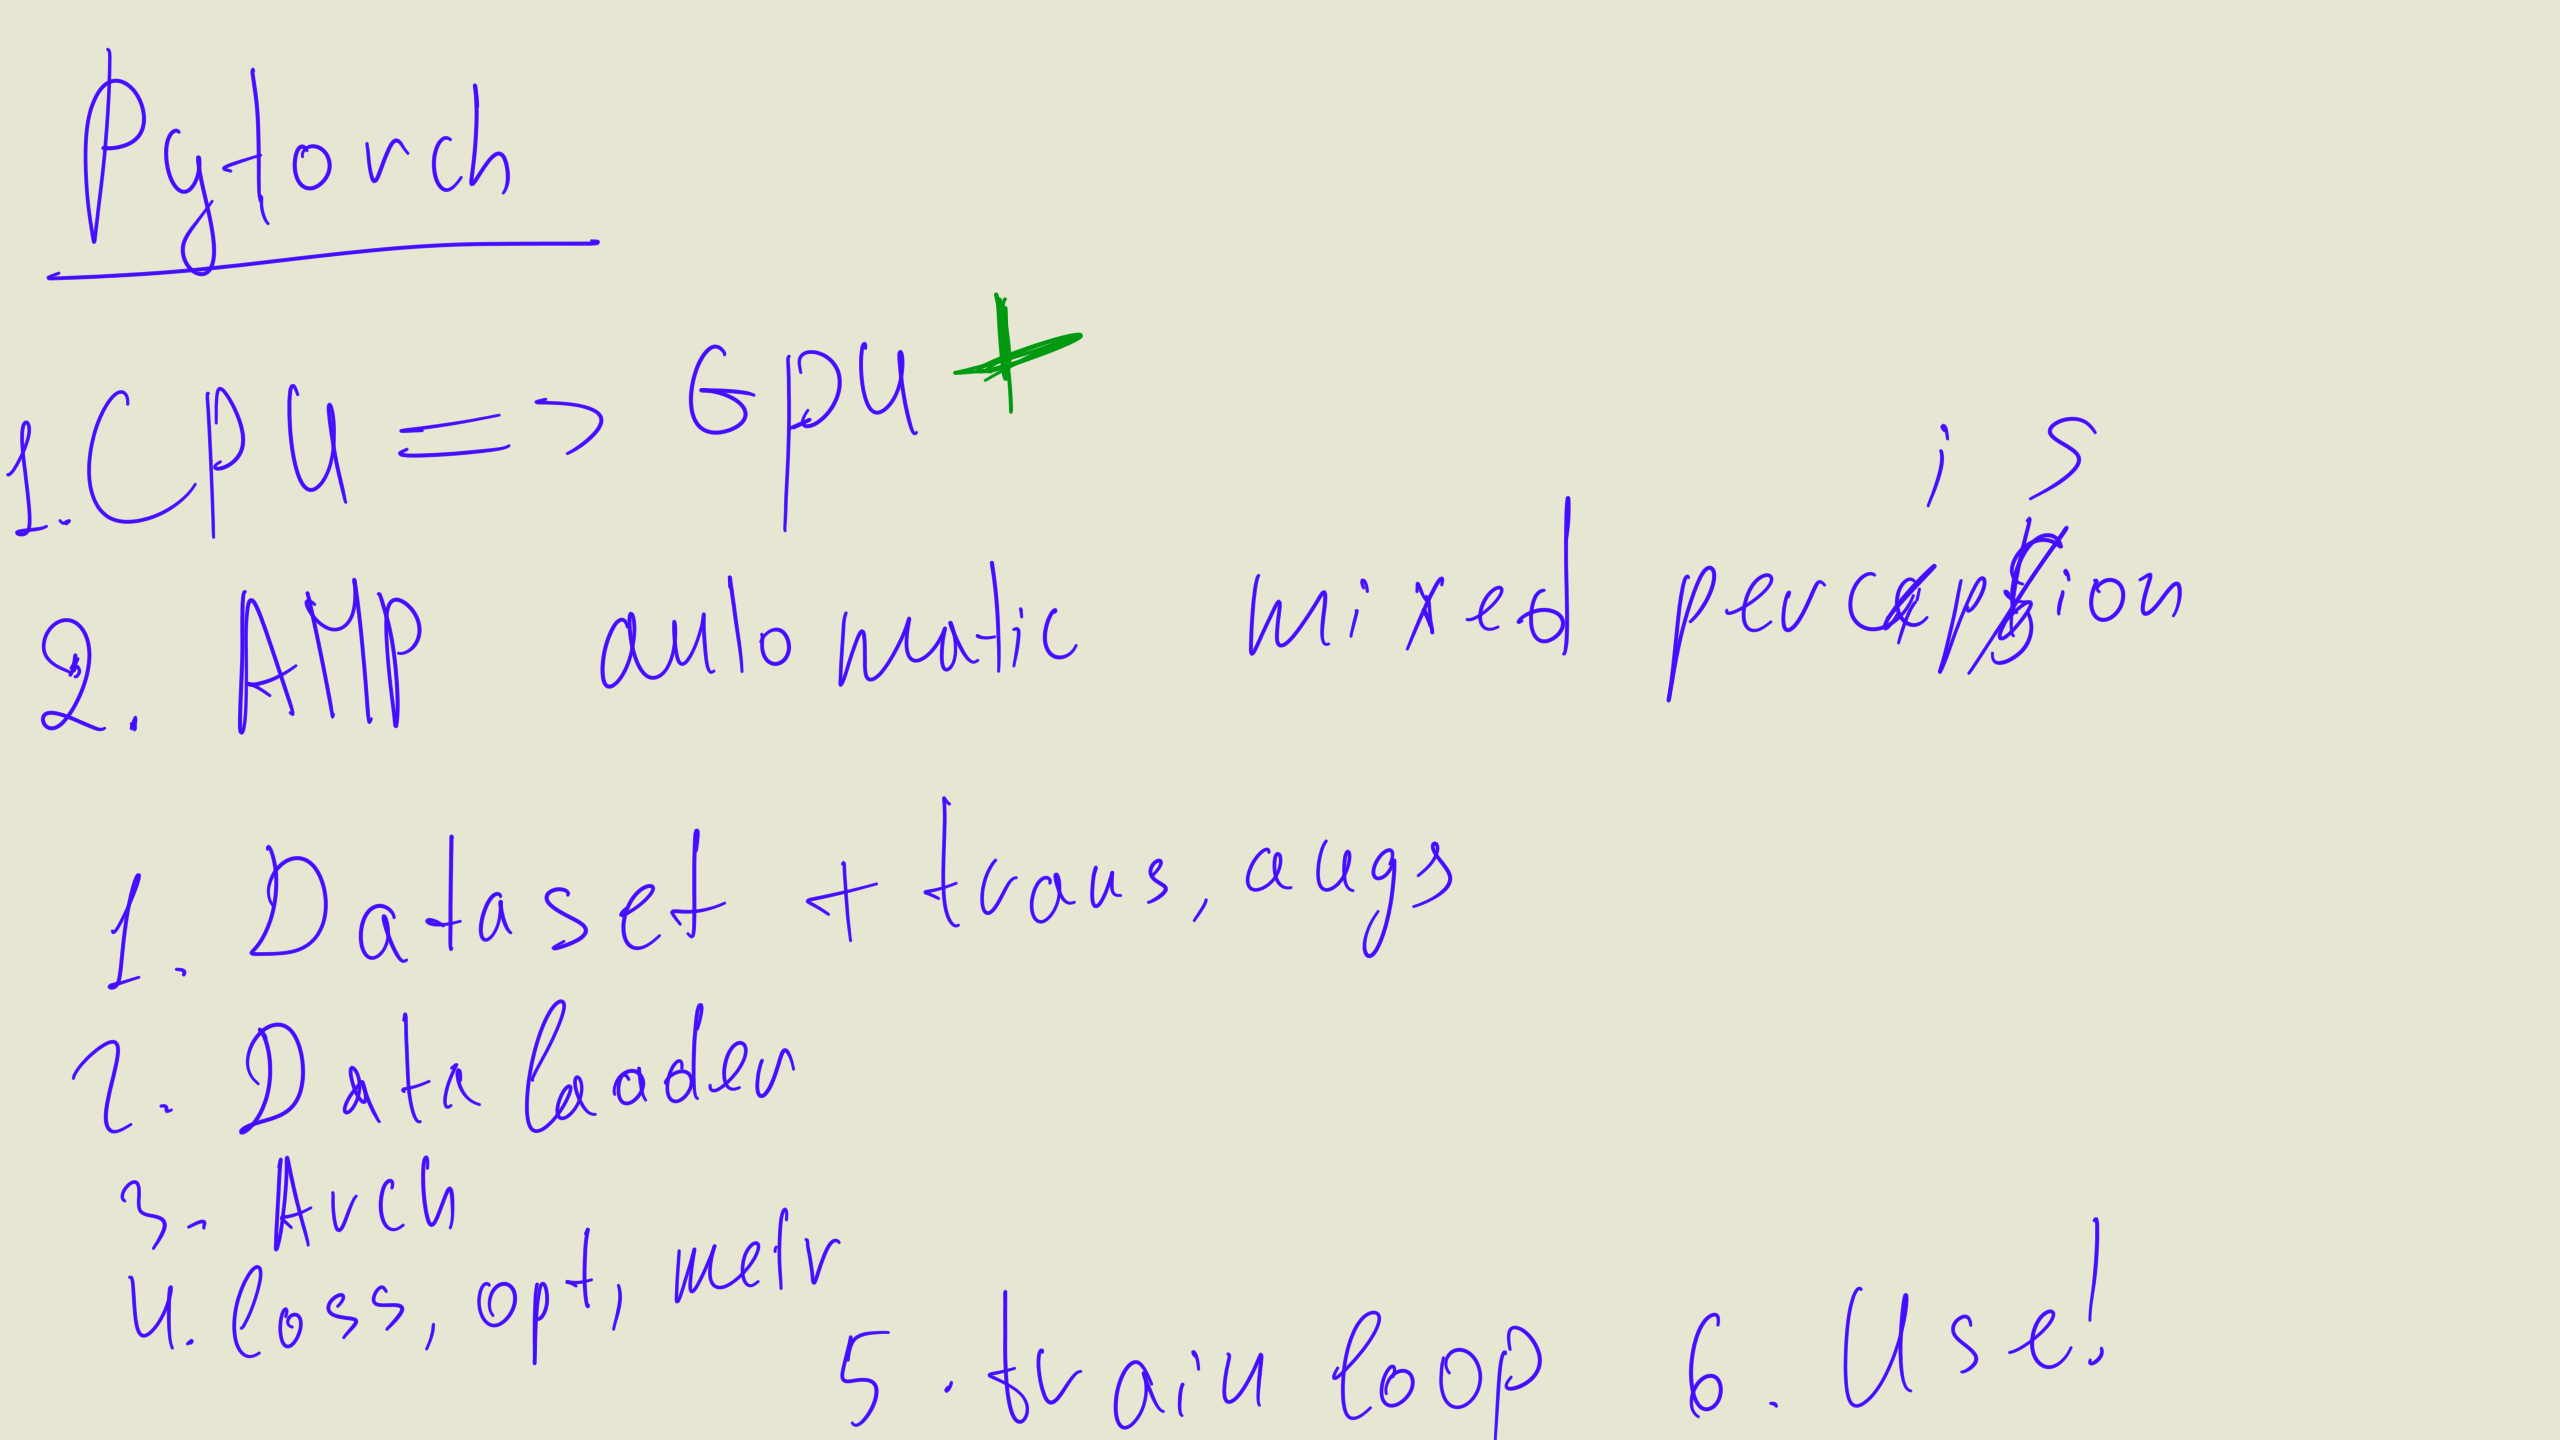 Pytorch
1. CPU => GPU +
i s
2. AMP automatic mixed percepsion
1. Dataset + trans, augs
2. Data loader
3. Arch
4. loss, opt, metr
5. train loop 6. Use!